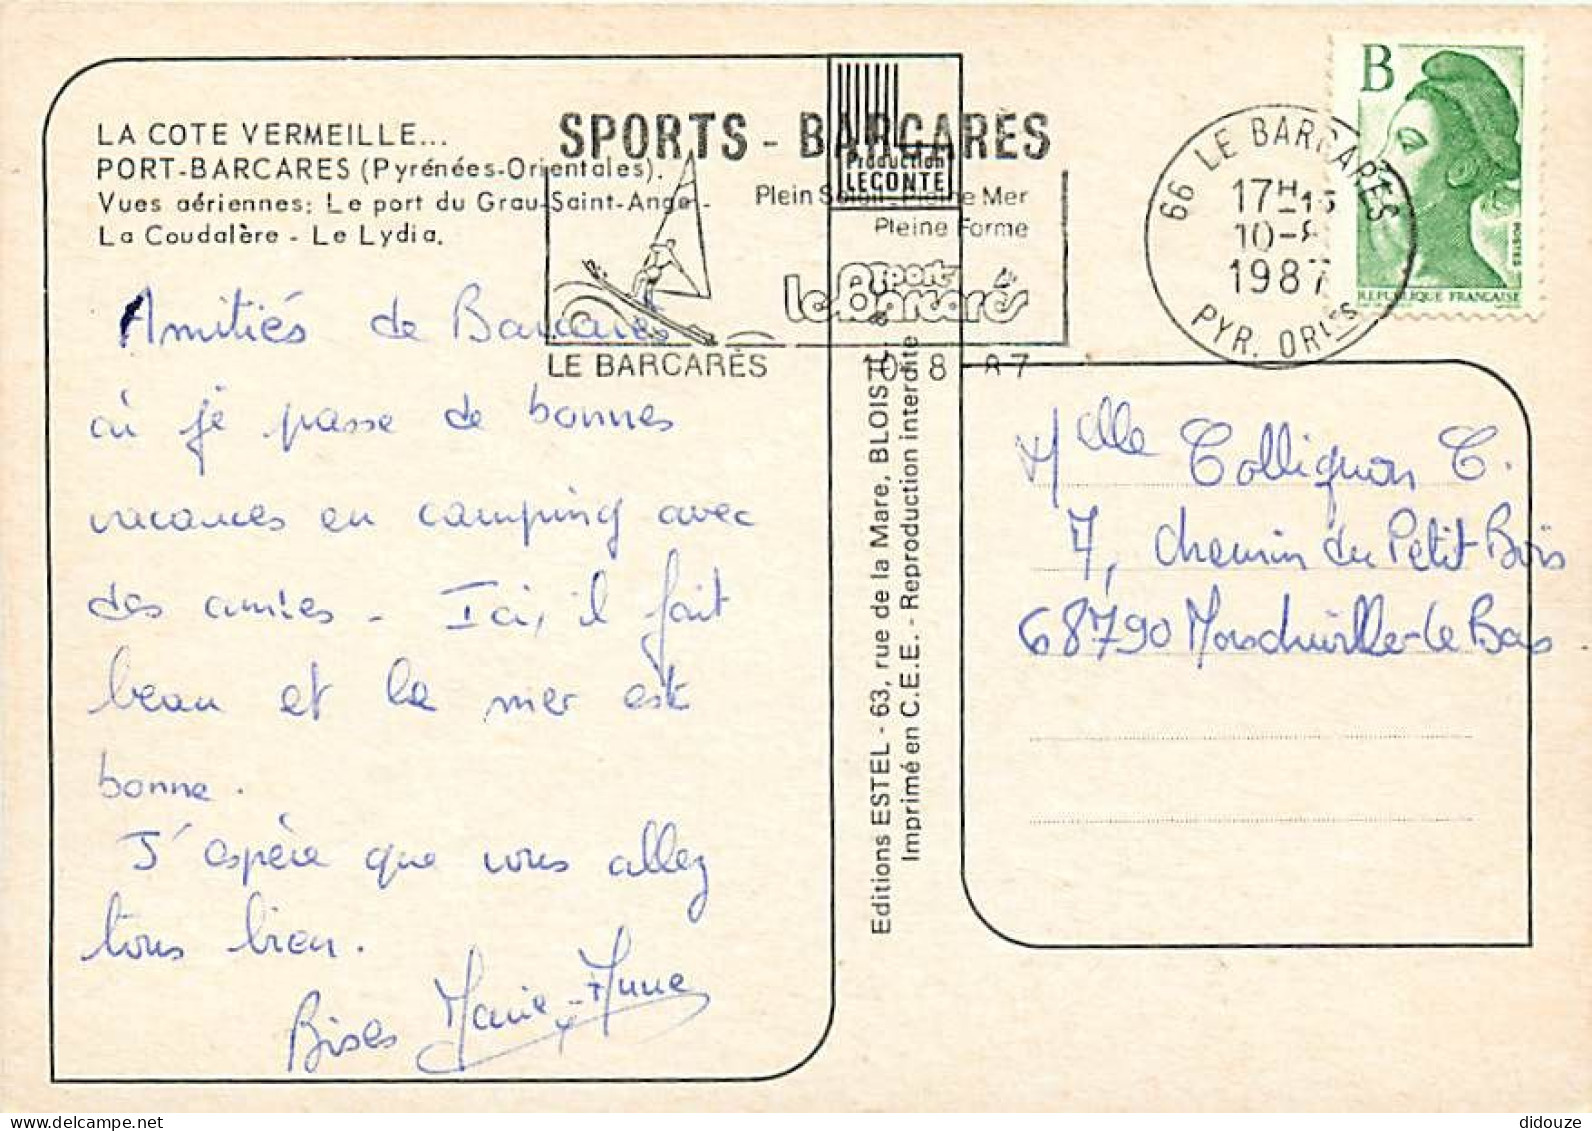 LA COTE VERMEILLE...
PORT-BARCARES (Pyrénées-Orientales).
Vues aériennes: Le port du Grau-Saint-Ange -
La Coudalère - Le Lydia.
SPORTS - BARCARÈS
Plein Soleil - Pleine Mer
Pleine Forme
Port
le Barcarès
LE BARCARÈS 10-8-87
Production
LECONTE
66 LE BARCARES
17H 15
10-8
1987
PYR. ORles
B
REPUBLIQUE FRANÇAISE
Amitiés de Barcares
où je passe de bonnes
vacances en camping avec
des amies - Ici, il fait
beau et la mer est
bonne.
J'espère que vous allez
tous bien.
Bises Marie-Anne
Editions ESTEL - 63, rue de la Mare, BLOIS
Imprimé en C.E.E. - Reproduction interdite
Melle Collignon C.
7, chemin du Petit Bois
68790 Morschwiller-le Bas
delcampe.net
didouze